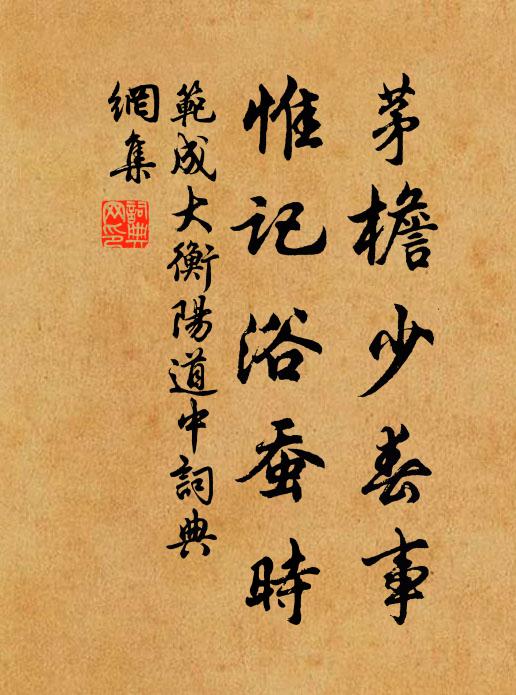 茅檐少春事
惟记浴蚕時
範成大衡陽道中詞典
網集
詞典
网印